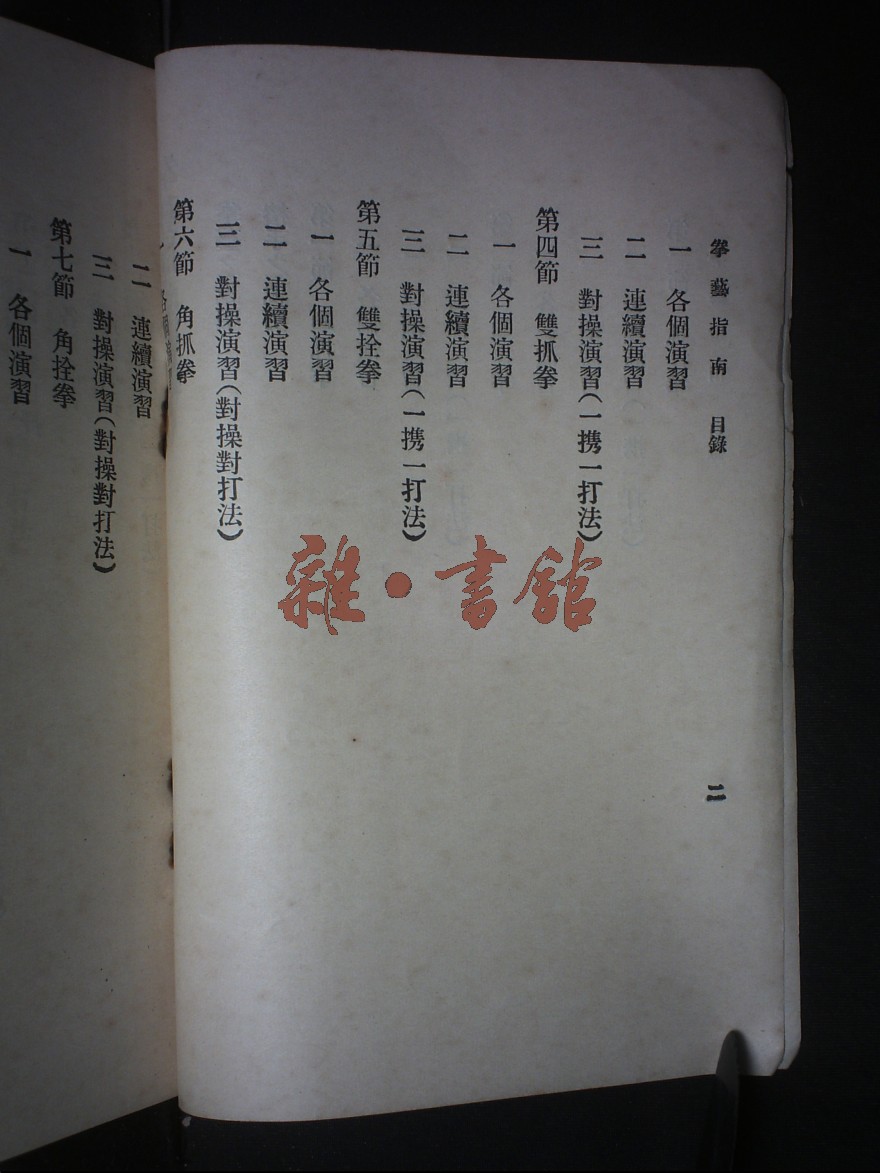 拳藝指南　目錄　二
一　各個演習
二　連續演習
三　對操演習(一携一打法)
第四節　雙抓拳
一　各個演習
二　連續演習
三　對操演習(一携一打法)
第五節　雙拴拳
一　各個演習
二　連續演習
三　對操演習(對操對打法)
第六節　角抓拳
一　各個演習
二　連續演習
三　對操演習(對操對打法)
第七節　角拴拳
一　各個演習
雜・書館